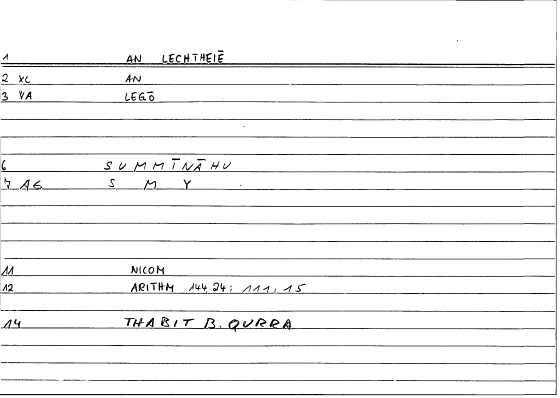 1 AN LECHTHEIĒ
2 XC AN
3 VA LEGŌ
6 SUMMĪNĀHU
7 AG S M Y
11 NICOM
12 ARITHM 144,24; 111,15
14 THABIT B. QURRA